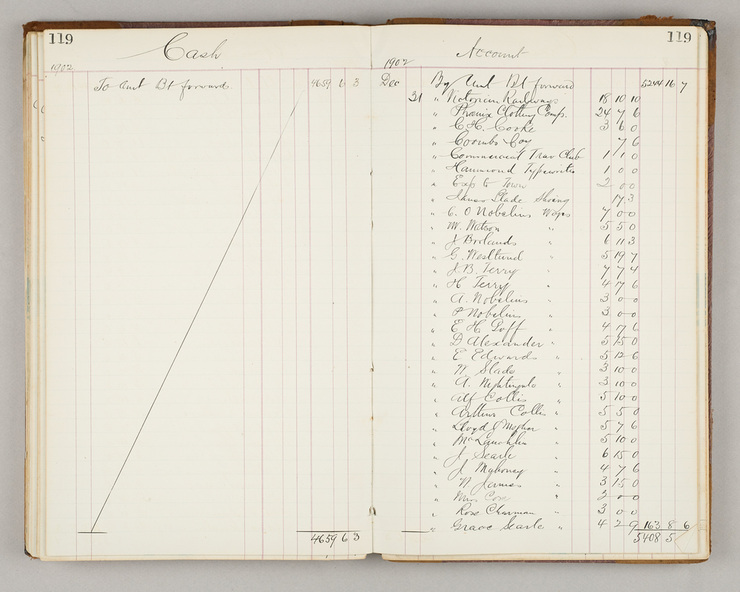 119
Cash
1902
To Amt Bt forward 4659 6 3
4659 6 3
119
Account
1902
Dec By Amt Bt forward 5244 16 7
31 " Victorian Railways 18 10 10
" Phoenix Clothing Comp. 24 7 6
" C. H. Cooke 3 6 0
" Coombs Coy 7 6
" Commercial Trav Club 1 1 0
" Hammond Typewriter 1 0 0
" Exp to Town 2 0 0
" Slade 17 3
" C. O Nobelius Wages 7 0 0
" W. Watson " 5 5 0
" J Borlands " 6 11 3
" G. Westlund " 5 19 7
" J. B. Terry " 7 7 4
" H Terry " 4 7 6
" A. Nobelius " 3 0 0
" P Nobelius " 3 0 0
" E H Goff " 4 7 6
" D Alexander " 5 15 0
" E Edwards " 5 12 6
" W Slade " 3 10 0
" A. Nightingale " 3 10 0
" Alf Collis " 5 10 0
" Arthur Collis " 5 5 0
" Lloyd J " 5 7 6
" McLauchlin " 5 10 0
" J Searle " 6 15 0
" J Mahoney " 4 7 6
" W James " 3 15 0
" Miss Cox " 2 0 0
" Rose Charman " 3 0 0
" Grace Searle " 4 2 9 163 8 6
5408 5